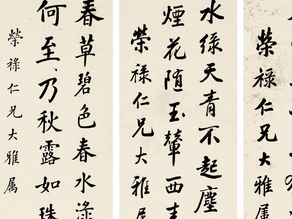 榮祿仁兄大雅属
水綠天青不起塵
煙花随玉輦西来
榮祿仁兄大雅属
春草碧色春水渌
何至乃秋露如珠
榮祿仁兄大雅属